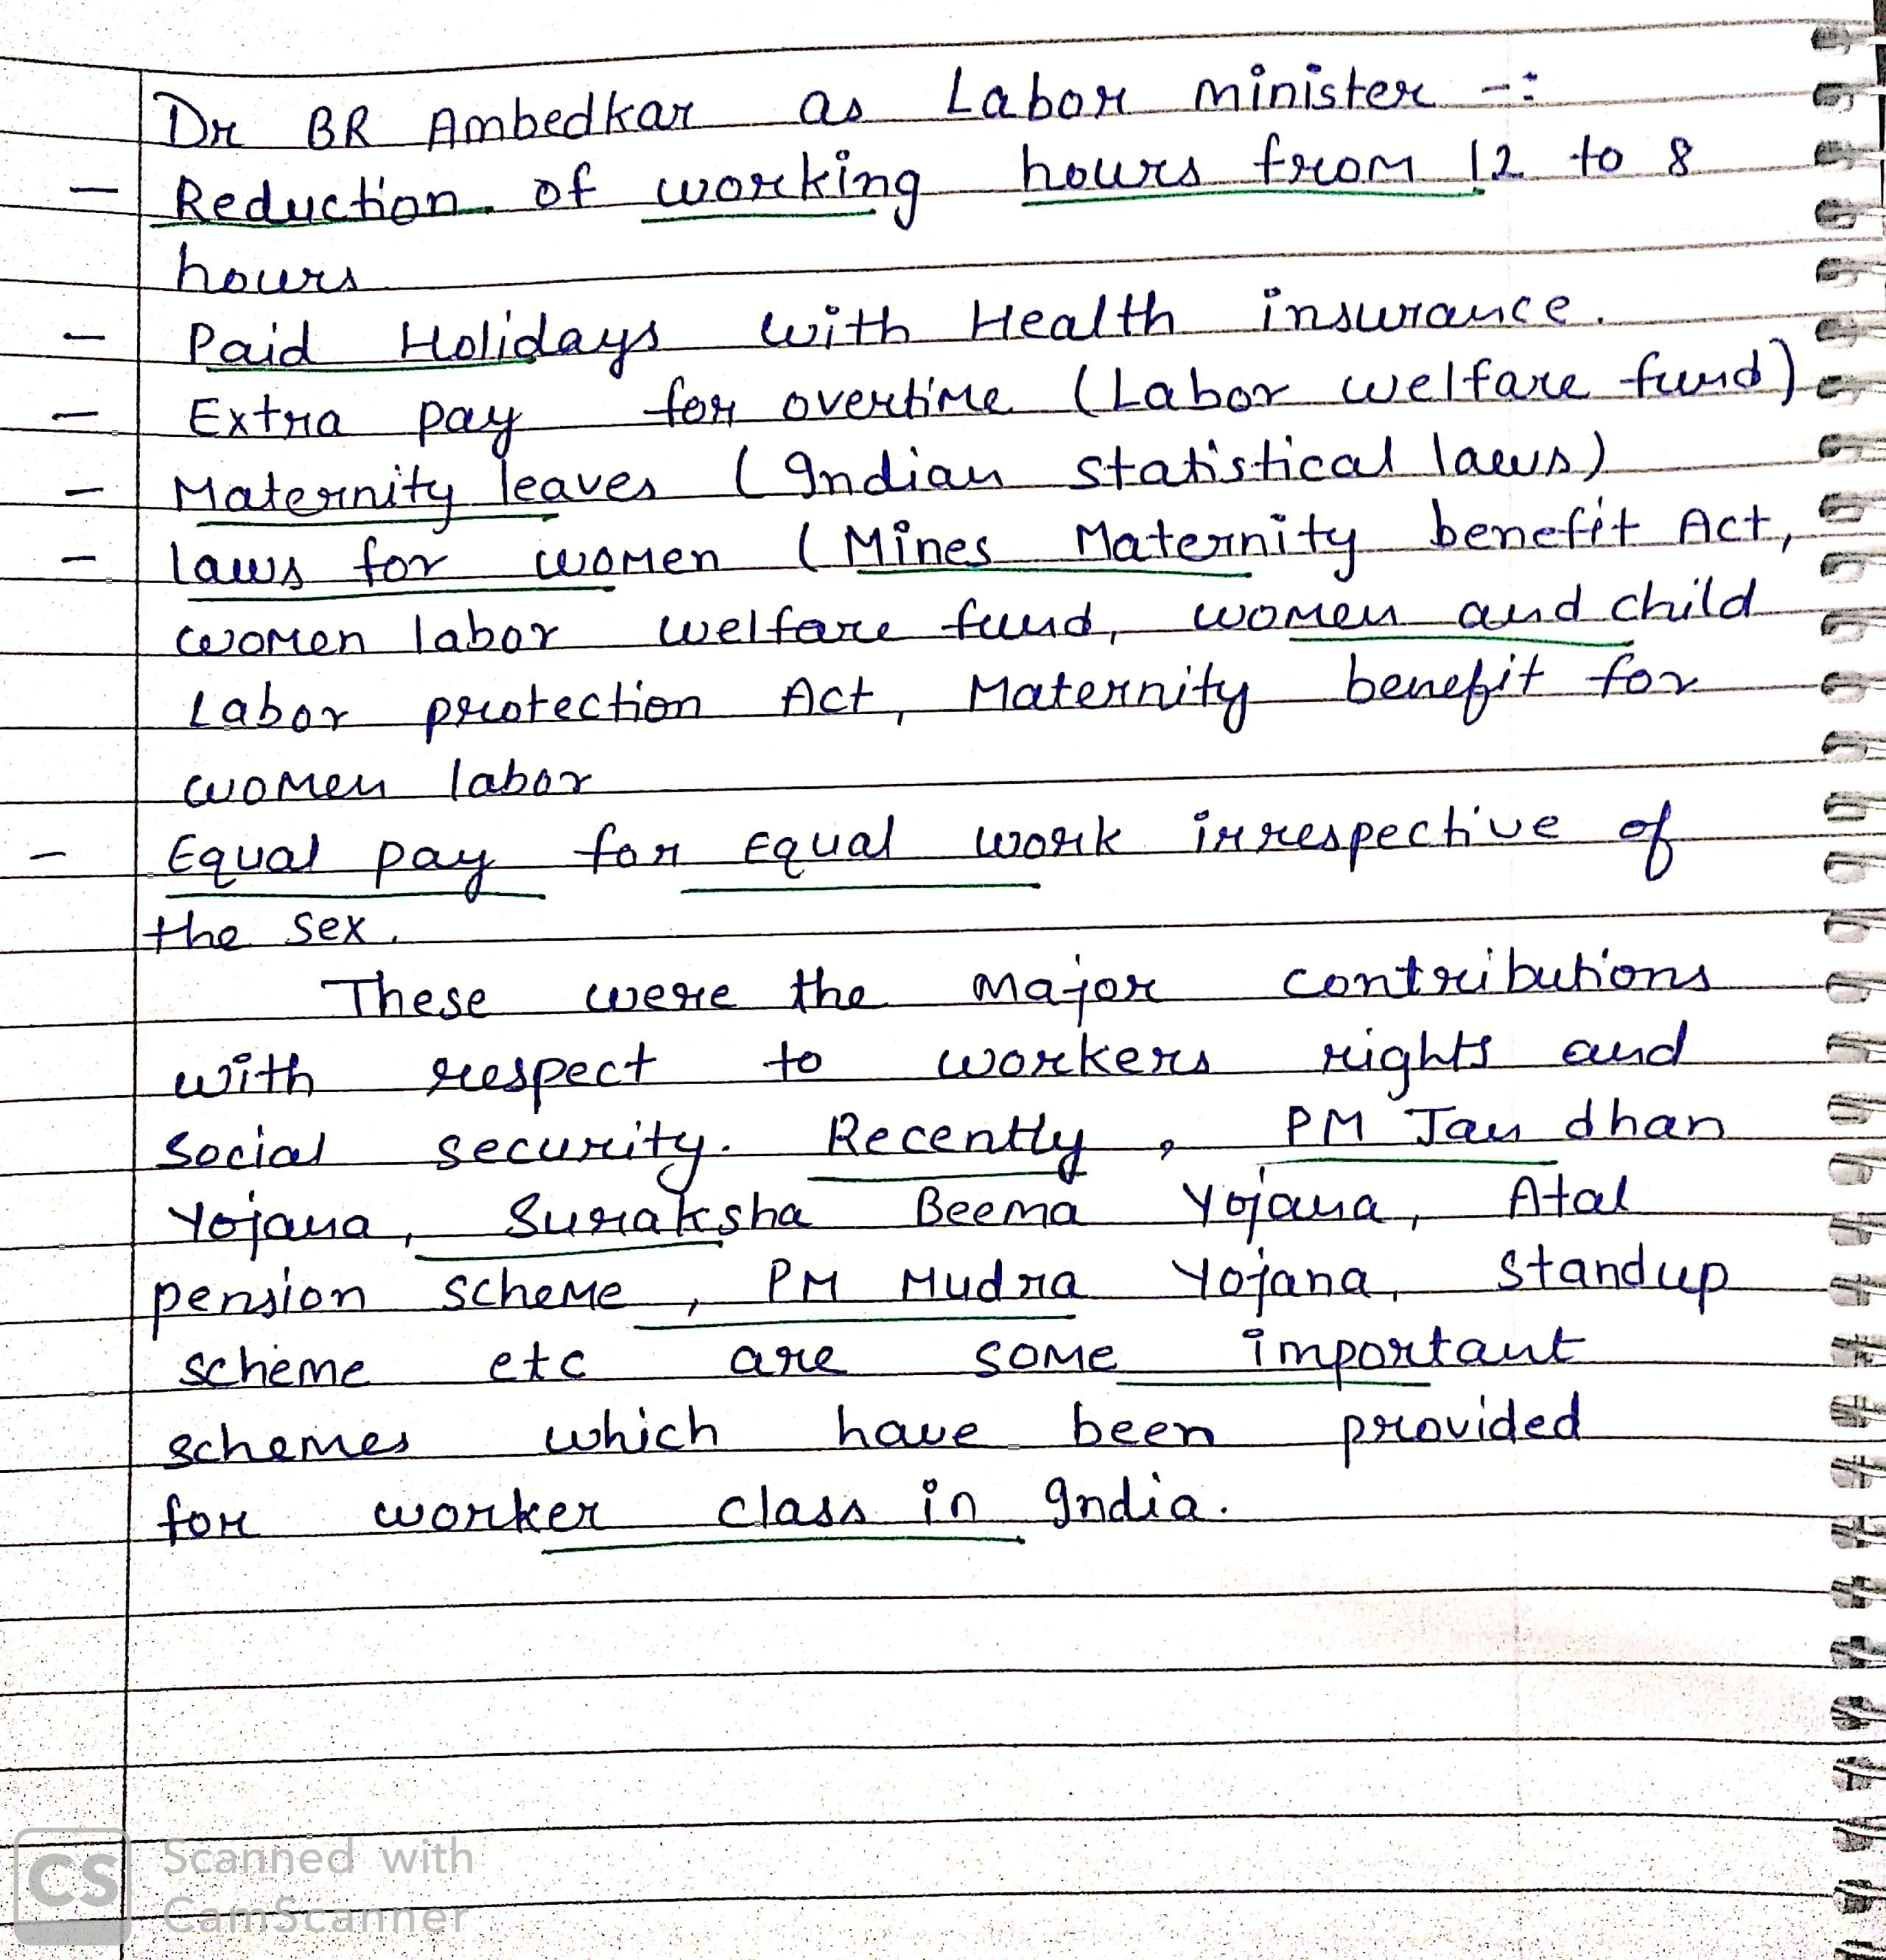 Dr BR Ambedkar as Labor minister -:
- Reduction of working hours from 12 to 8
hours
- Paid Holidays with Health insurance.
- Extra pay for overtime (Labor welfare fund)
- Maternity leaves (Indian statistical laws)
- laws for women (Mines Maternity benefit Act,
women labor welfare fund, women and child
Labor protection Act, Maternity benefit for
women labor
- Equal pay for Equal work irrespective of
the sex.
These were the major contributions
with respect to workers rights and
social security. Recently, PM Jan dhan
Yojana, Suraksha Beema Yojana, Atal
pension scheme, PM Mudra Yojana, standup
scheme etc are some important
schemes which have been provided
for worker class in India.
CS Scanned with
CamScanner